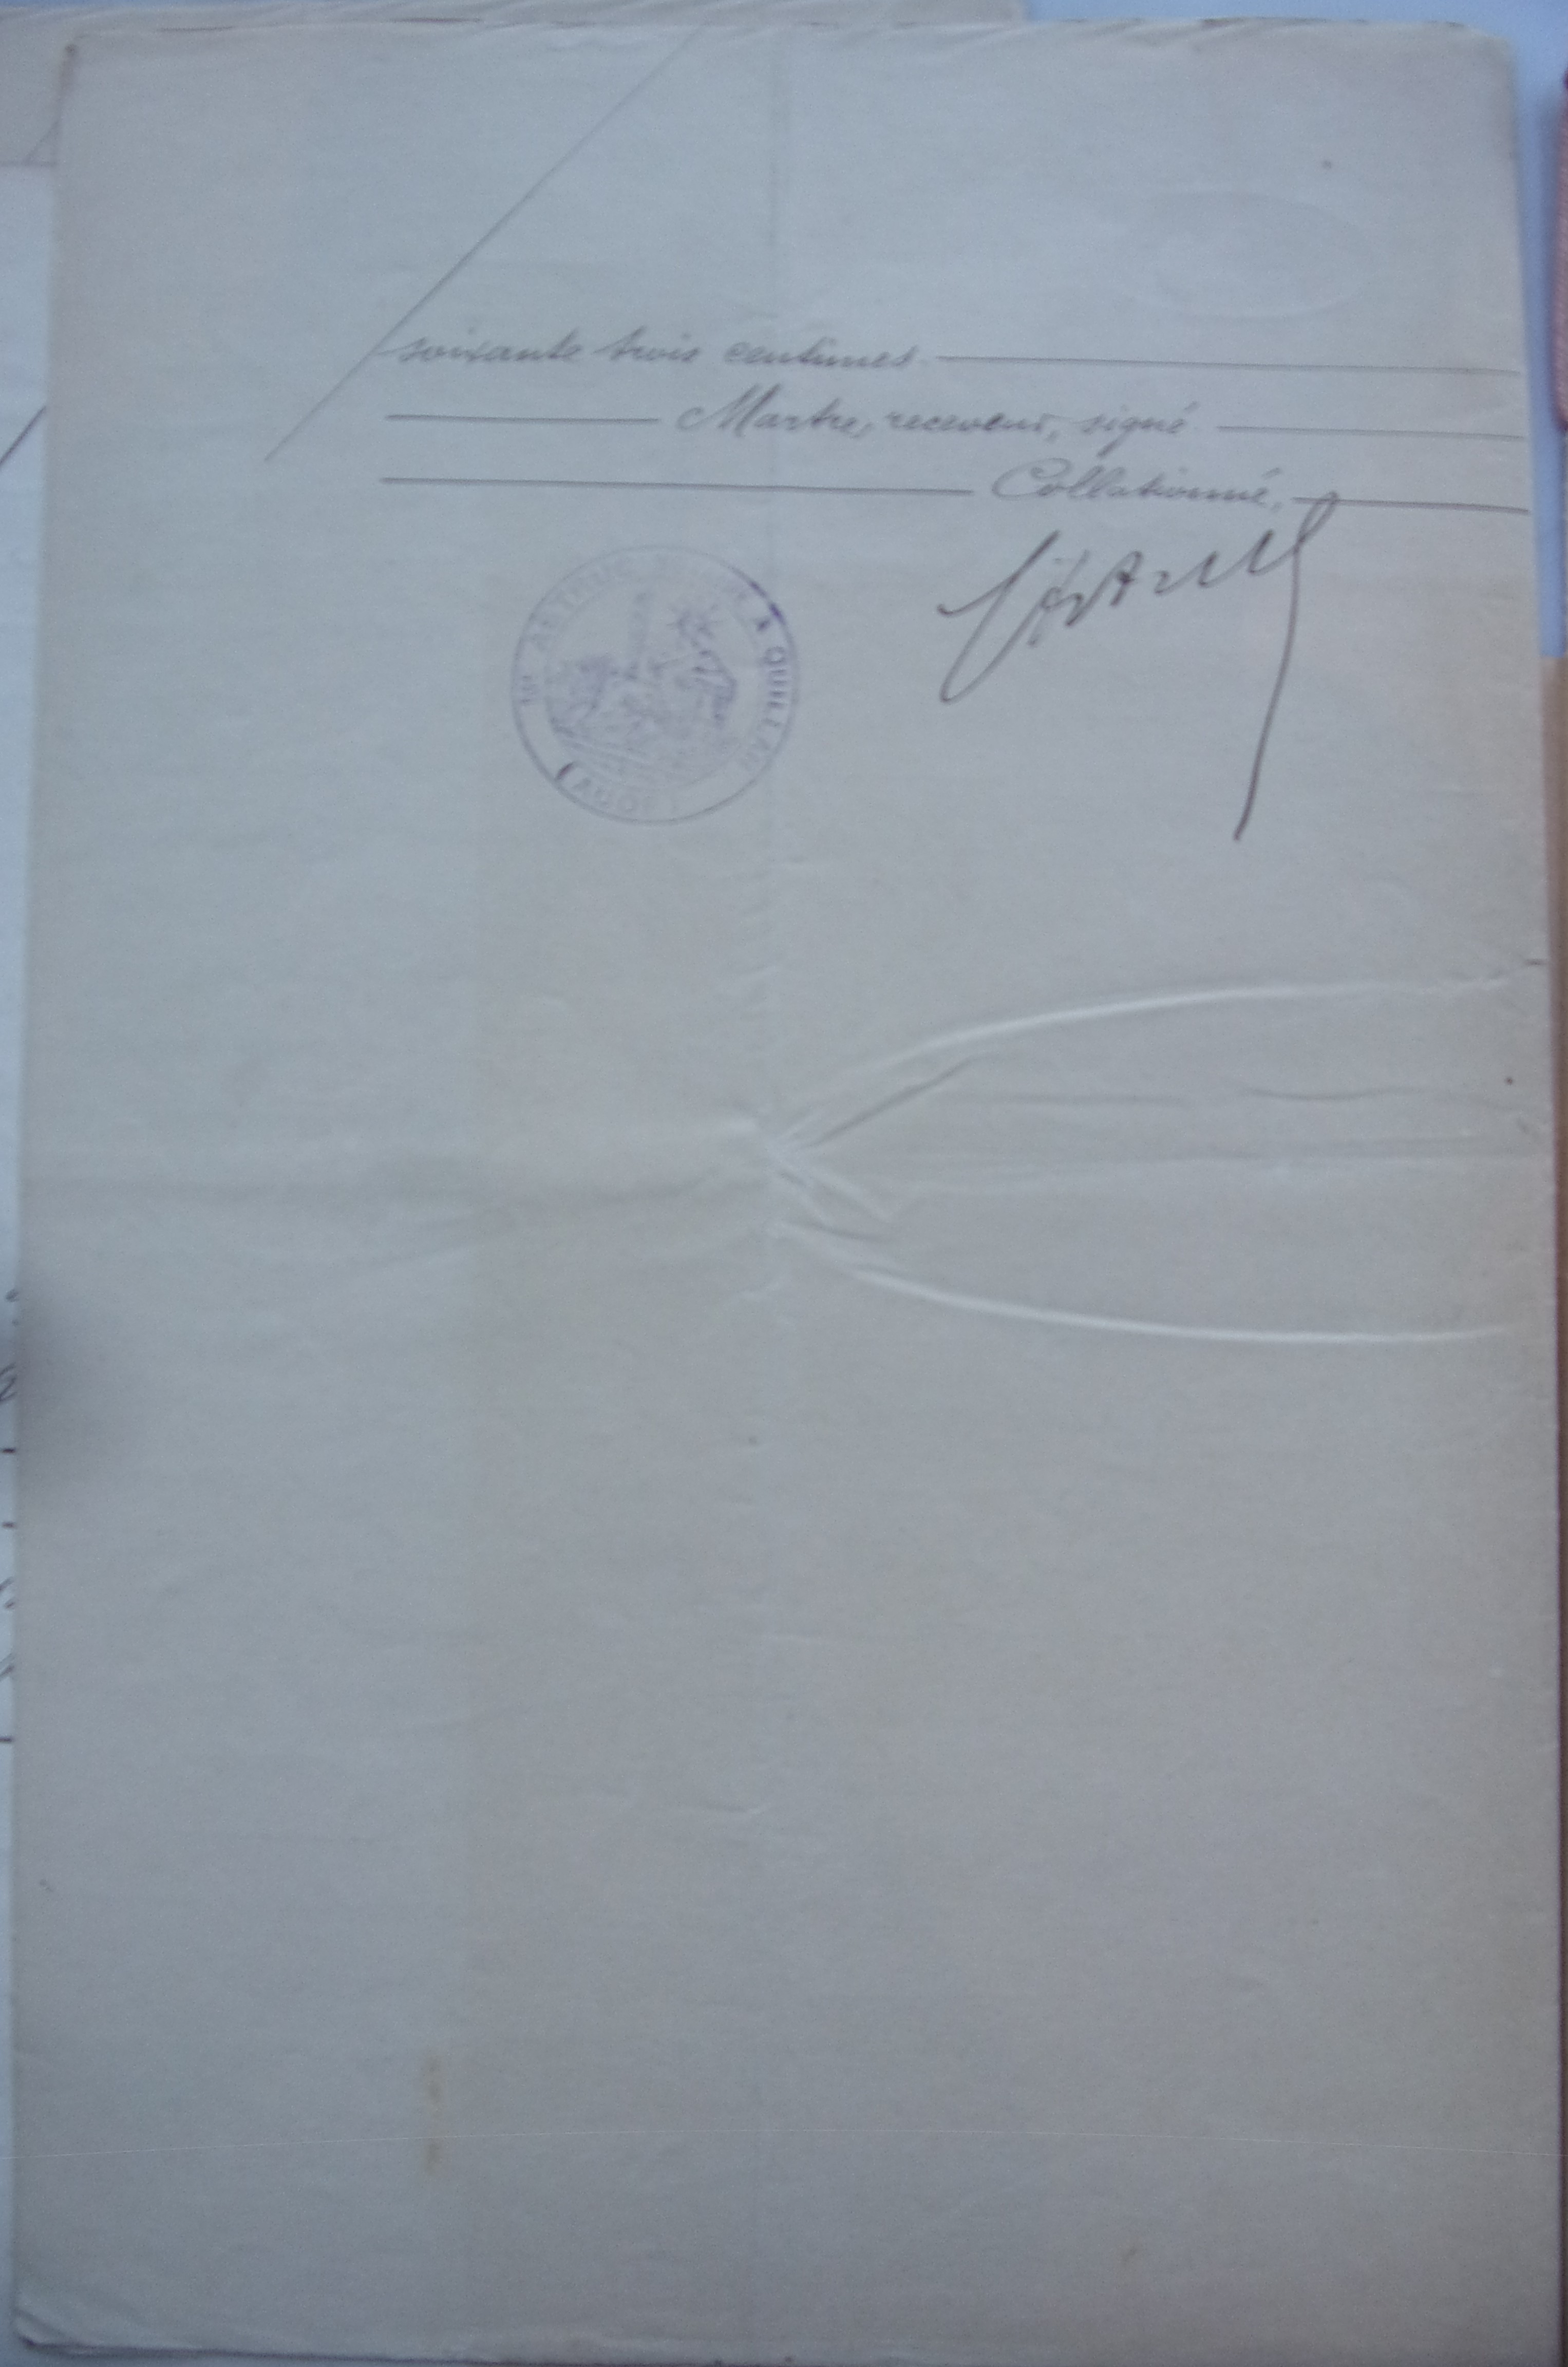 soixante trois centimes
Martre, receveur, signé
Collationné,
Mᵉ ASTRUC NOTAIRE A QUILLAN
(AUDE)